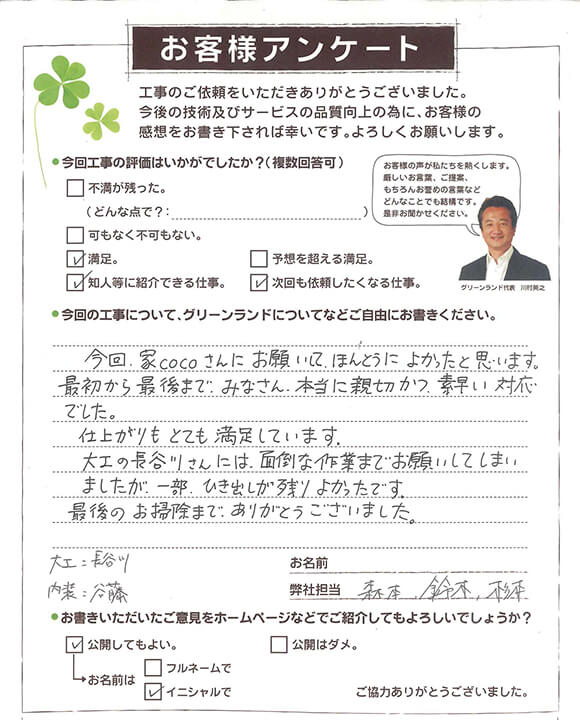 お客様アンケート
工事のご依頼をいただきありがとうございました。
今後の技術及びサービスの品質向上の為に、お客様の
感想をお書き下されば幸いです。よろしくお願いします。
今回工事の評価はいかがでしたか?(複数回答可)
不満が残った。
(どんな点で?: )
可もなく不可もない。
満足。
予想を超える満足。
知人等に紹介できる仕事。
次回も依頼したくなる仕事。
お客様の声が私たちを熱くします。
厳しいお言葉、ご提案、
もちろんお誉めの言葉など
どんなことでも結構です。
是非お聞かせください。
グリーンランド代表 川村美之
今回の工事について、グリーンランドについてなどご自由にお書きください。
今回、家cocoさんにお願いして、ほんとうによかったと思います。
最初から最後まで、みなさん、本当に親切かつ、素早い対応
でした。
仕上がりもとても満足しています。
大工の長谷川さんには、面倒な作業までお願いしてしまい
ましたが、一部、ひき出しが残りよかったです。
最後のお掃除まで、ありがとうございました。
大工:長谷川
内装:谷藤
お名前
弊社担当 森本、鈴木、杉本
お書きいただいたご意見をホームページなどでご紹介してもよろしいでしょうか?
公開してもよい。
公開はダメ。
お名前は
フルネームで
イニシャルで
ご協力ありがとうございました。